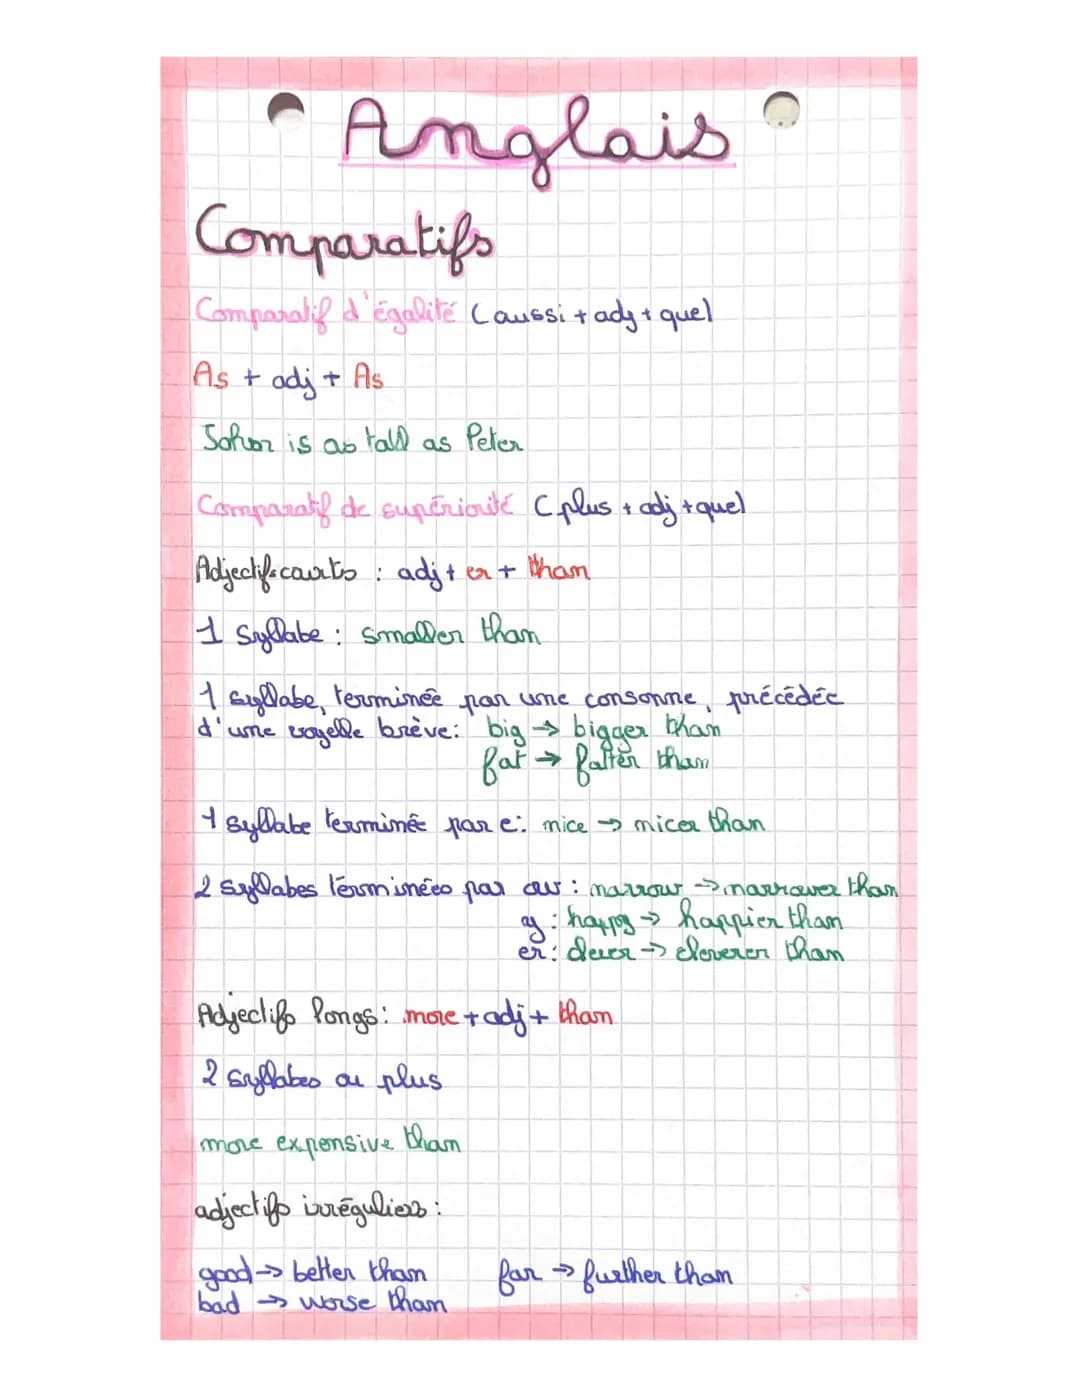 Anglais
Comparatifs
Comparatif d'égalité (aussi + adj + que)
As + adj + As
John is as tall as Peter
Comparatif de supériorité (plus + adj + que)
Adjectifs courts : adj + er + than
1 syllabe : smaller than
1 syllabe, terminée par une consonne, précédée
d'une voyelle brève: big → bigger than
fat → fatter than
1 syllabe terminée par e: nice → nicer than
2 syllabes terminées par ow : narrow → narrower than
y : happy → happier than
er : clever → cleverer than
Adjectifs longs : more + adj + than
2 syllabes ou plus
more expensive than
adjectifs irréguliers :
good → better than far → further than
bad → worse than